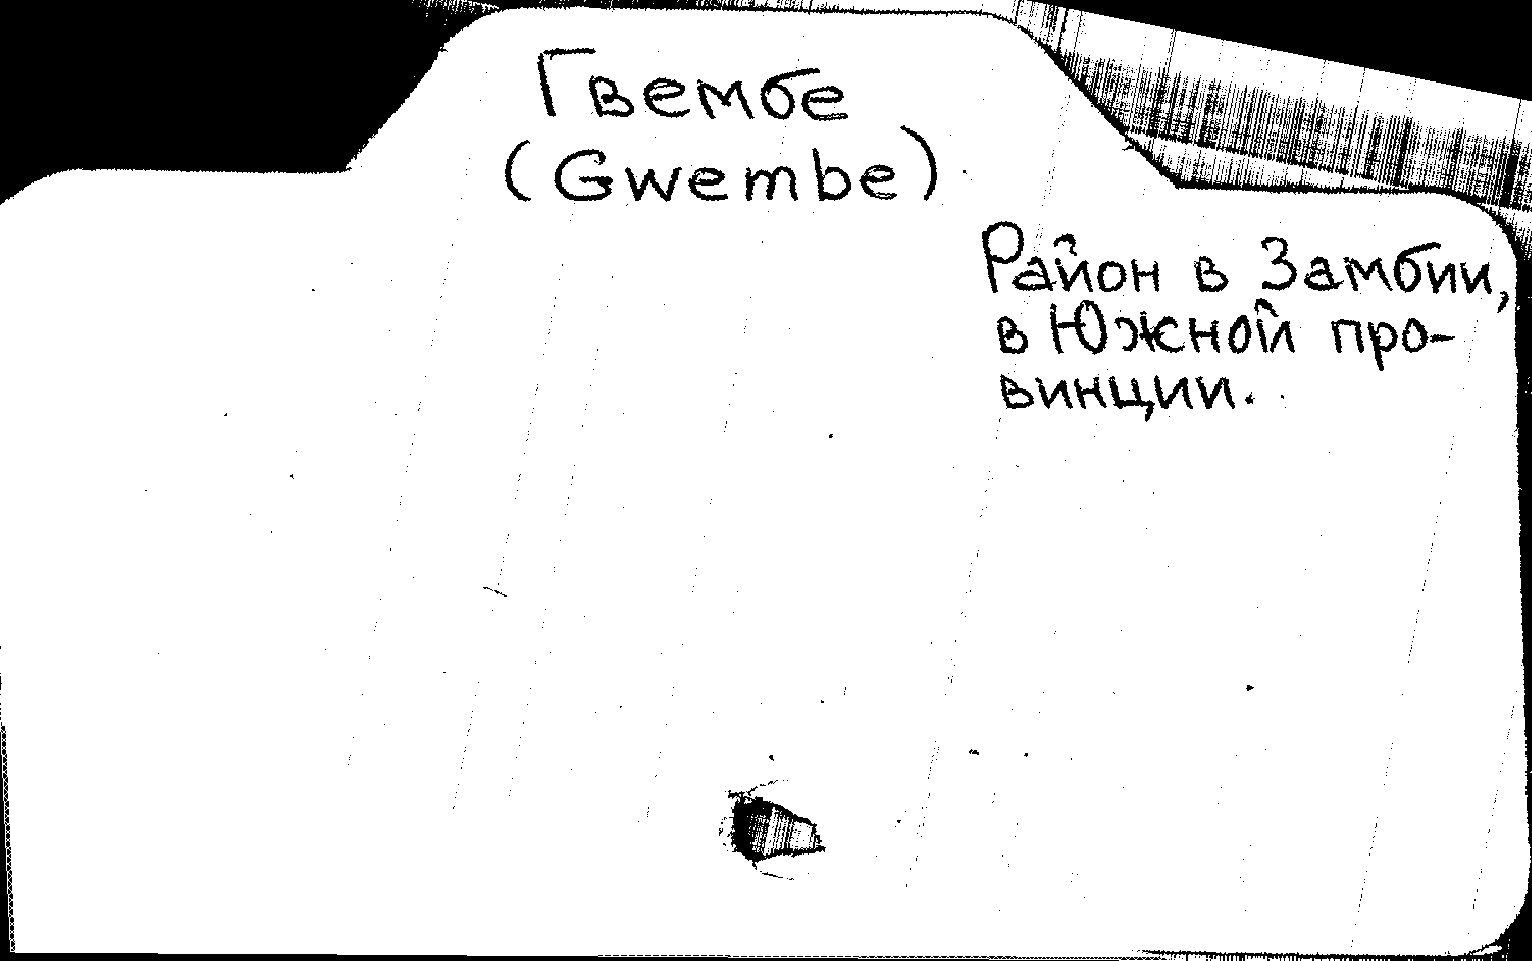 Гвембе
(Gwembe)
Район в Замбии,
в Южной про-
винции.